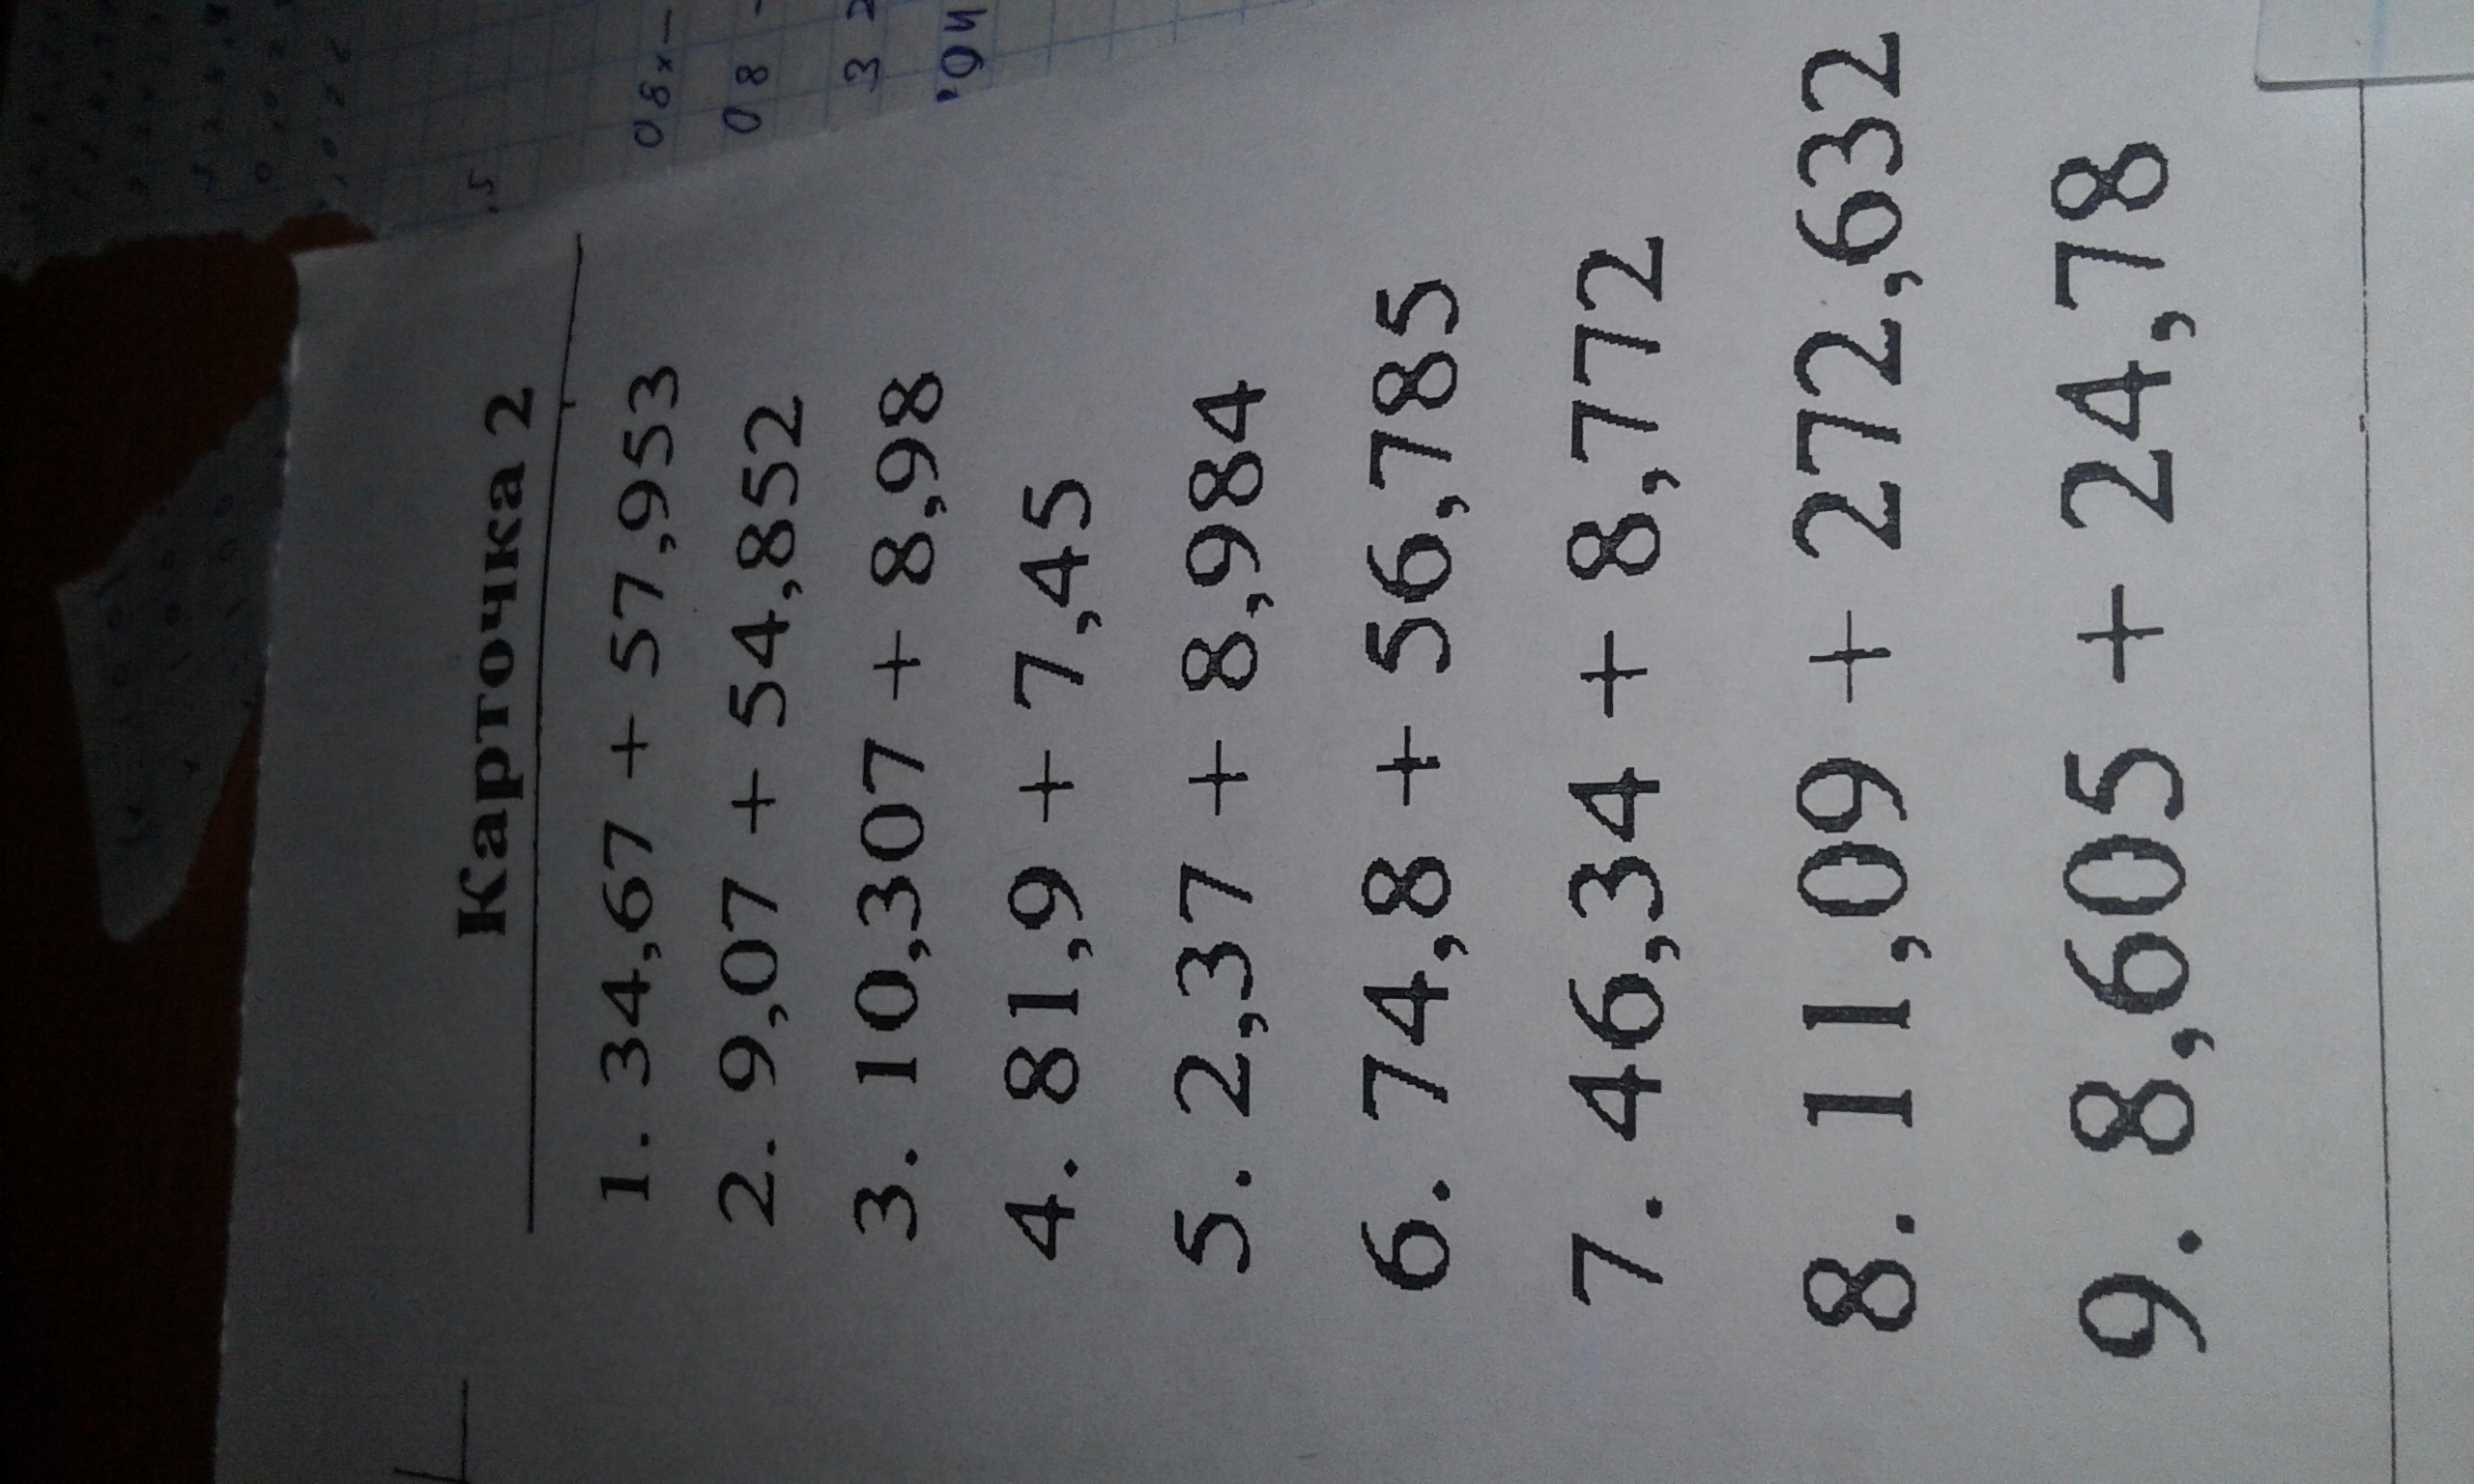 Карточка 2
1. 34,67 + 57,953
2. 9,07 + 54,852
3. 10,307 + 8,98
4. 81,9 + 7,45
5. 2,37 + 8,984
6. 74,8 + 56,785
7. 46,34 + 8,772
8. 11,09 + 272,632
9. 8,605 + 24,78